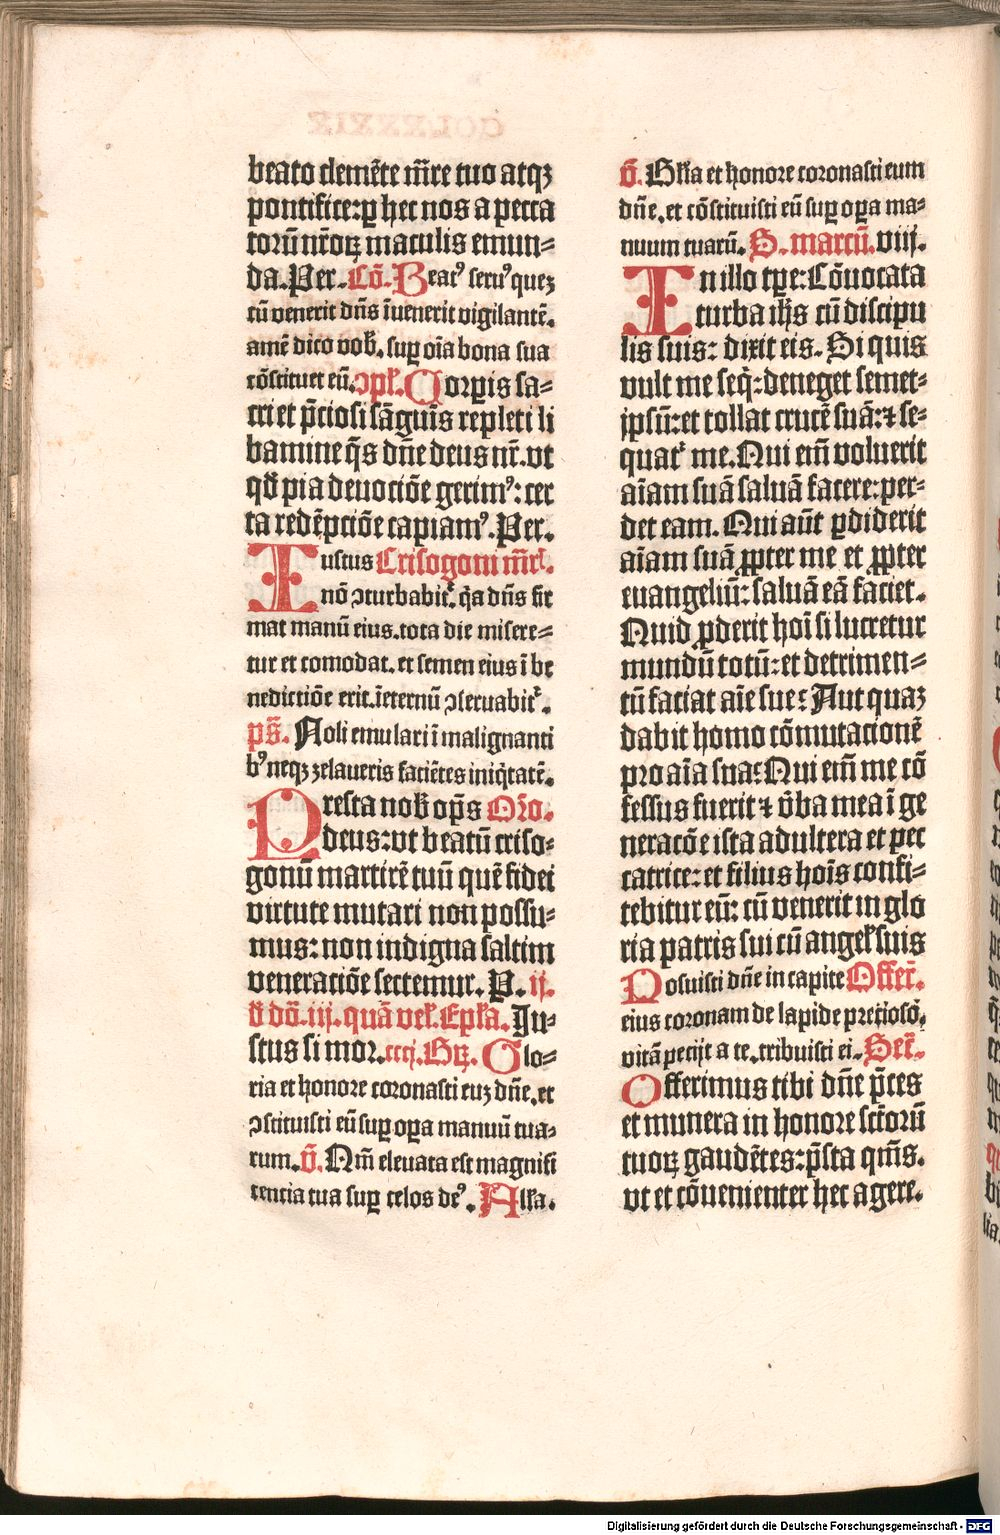 beato clemēte m̄re tuo atqꝫ
pontifice: ꝑ hec nos a pecca
torū nr̄oꝝ maculis emun⸗
da. Per. Cō. Beatꝰ seruꝰ queꝫ
cū venerit dn̄s īuenerit vigilantē.
amē dico vob̄. suꝑ oīa bona sua
cōstituet eū. ↄpl̄. Corpis sa⸗
cri et p̄ciosi sāguīs repleti li
bamine q̄s dn̄e deus nr̄. vt
qd̄ pia deuociōe gerimꝰ: cer
ta redēpciōe capiamꝰ. Per.
Iustus Crisogoni m̄rl̄.
nō ↄturbabit᷑. q̄a dn̄s fir
mat manū eius. tota die misere⸗
tur et comodat. et semen eius ī be
nedictiōe erit. īeternū ↄseruabit᷑.
ps̄. Noli emulari ī malignanti
bꝰ neqꝫ zelaueris faciētes iniq̇tatē.
Presta nob̄ op̄s Or̄o.
deus: vt beatū criso⸗
gonū martirē tuū quē fidei
virtute mutari non possu⸗
mus: non indigna saltim
veneraciōe sectemur. P. ij.
ꝟ dō. iij. quā vel̄. Epl̄a. Iu⸗
stus si mor. cccj. Gꝝ. Glo⸗
ria et honore coronasti euꝫ dn̄e. et
ↄstituisti eū suꝑ oꝑa manuū tua⸗
rum. v̄. Qm̄ eleuata est magnifi
cencia tua suꝑ celos deꝰ. All̄a.
v̄. Gl̄ia et honore coronasti eum
dn̄e. et cōstituisti eū suꝑ oꝑa ma⸗
nuum tuarū. S. marcū. viij.
In illo tꝑe: Cōuocata
turba ih̄s cū discipu
lis suis: dixit eis. Si quis
vult me seq̇: deneget semet⸗
ipsū: et tollat crucē suā: ⁊ se⸗
quat᷑ me. Qui em̄ voluerit
aīam suā saluā facere: per⸗
det eam. Qui aūt ꝑdiderit
aīam suā ꝓpter me et ꝓpter
euangeliū: saluā eā faciet.
Quid ꝓderit hoī si lucretur
mundū totū: et detrimen⸗
tū faciat aīe sue? Aut quaꝫ
dabit homo cōmutacionē
pro aīa sua? Qui em̄ me cō
fessus fuerit ⁊ v̄ba mea ī ge
neracōe ista adultera et pec
catrice: et filius hoīs confi⸗
tebitur eū: cū venerit in glo
ria patris sui cū angel̄ suis
Posuisti dn̄e in capite Offer̄.
eius coronam de lapide preciosō.
vitā pecijt a te. tribuisti ei. Secr̄.
Offerimus tibi dn̄e p̄ces
et munera in honore sctōrū
tuoꝝ gaudētes: p̄sta qm̄s.
vt et cōuenienter hec agere.
Digitalisierung gefördert durch die Deutsche Forschungsgemeinschaft - DFG